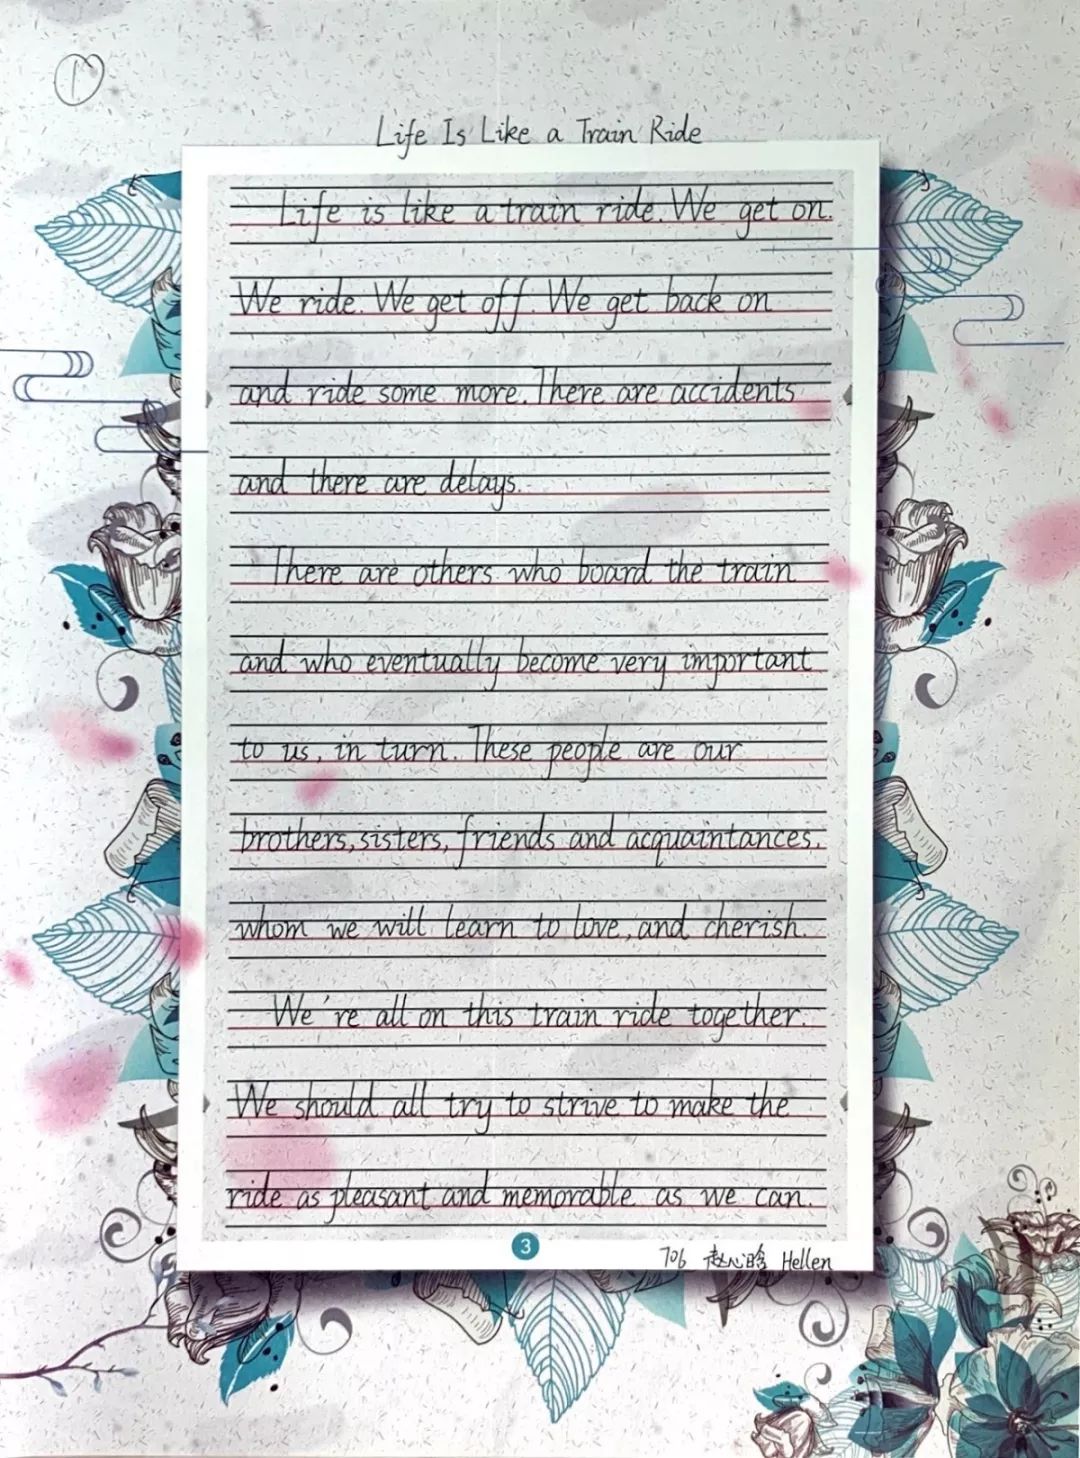 1
Life Is Like a Train Ride
Life is like a train ride. We get on.
We ride. We get off. We get back on
and ride some more. There are accidents
and there are delays.
There are others who board the train
and who eventually become very important
to us, in turn. These people are our
brothers, sisters, friends and acquaintances,
whom we will learn to love, and cherish.
We're all on this train ride together.
We should all try to strive to make the
ride as pleasant and memorable as we can.
3
706 赵心晗 Hellen